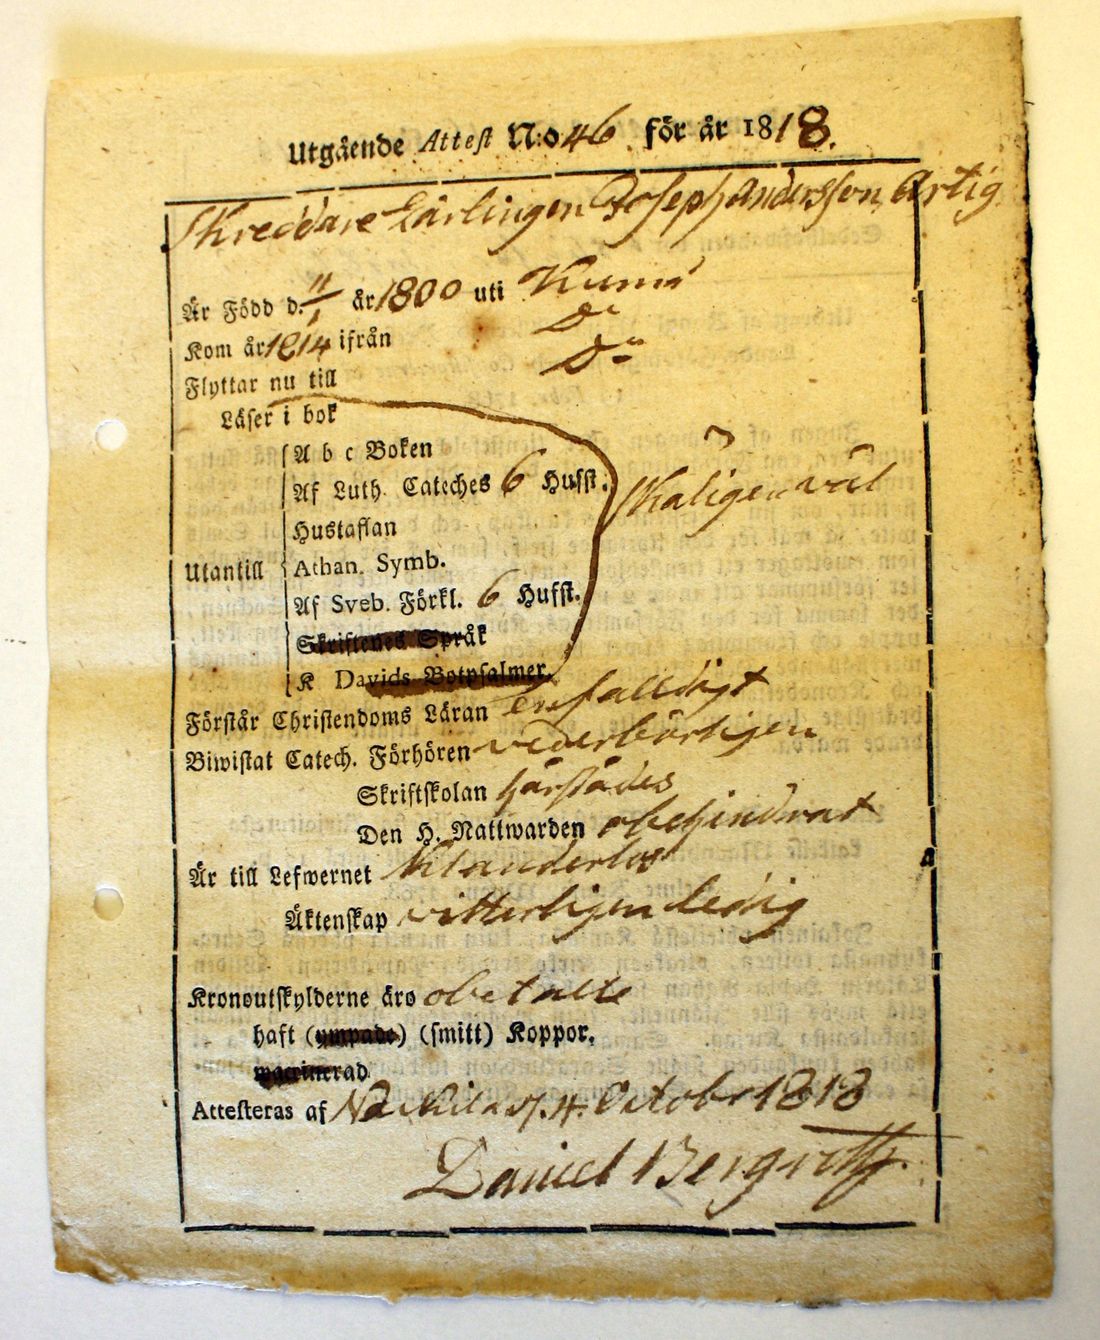 Utgående Attest N:o 46 för år 1818.
Skreddare Lärlingen Joseph Andersson, Ärlig
Är Född d. 11/1 år 1800 uti Kumo
Kom år 1814 ifrån Do
Flyttar nu till Do
Läser i bok
A b c Boken
Af Luth. Cateches 6 Hufst.
Skäligen väl
Hustaflan
Utantill
Athan. Symb.
Af Sveb. Förkl. 6 Hufst.
Skriftenes Språk
K Davids Botpsalmer.
Förstår Christendoms Läran enfalldigt
Biwistat Catech. Förhören vederbörligen
Skriftskolan härstädes
Den H. Nattwarden obehindrat
Är till Lefwernet Klanderlös
Äktenskap vitterligen ledig
Kronoutskylderne äro obetalte
haft (ympade) (smitt) Koppor.
waccinerad
Attesteras af Nackila d. 4. Octobr 1818
Daniel Bergroth